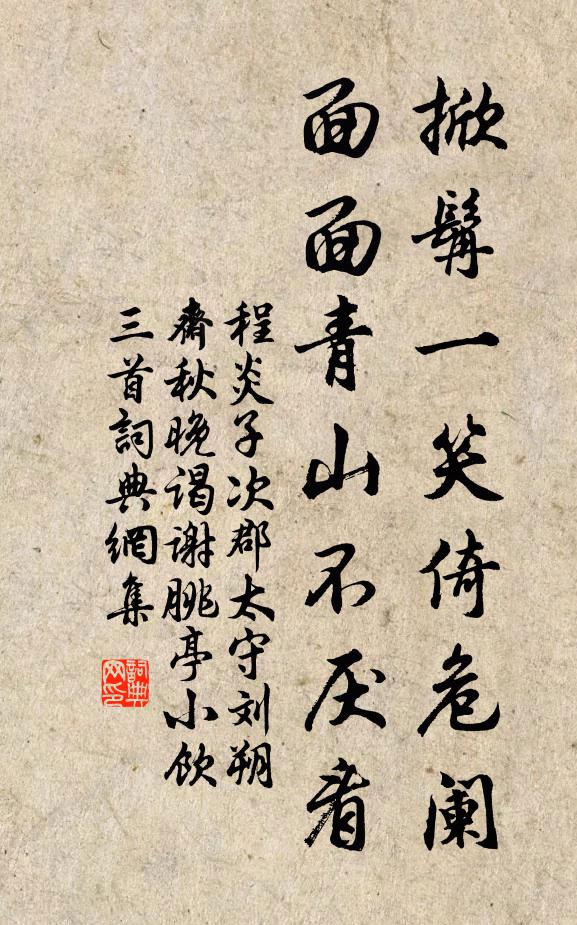 掀髯一笑倚危阑
面面青山不厌看
程炎子次郡太守刘朔
斋秋晚谒谢朓亭小饮
三首詞典網集
詞典
网印